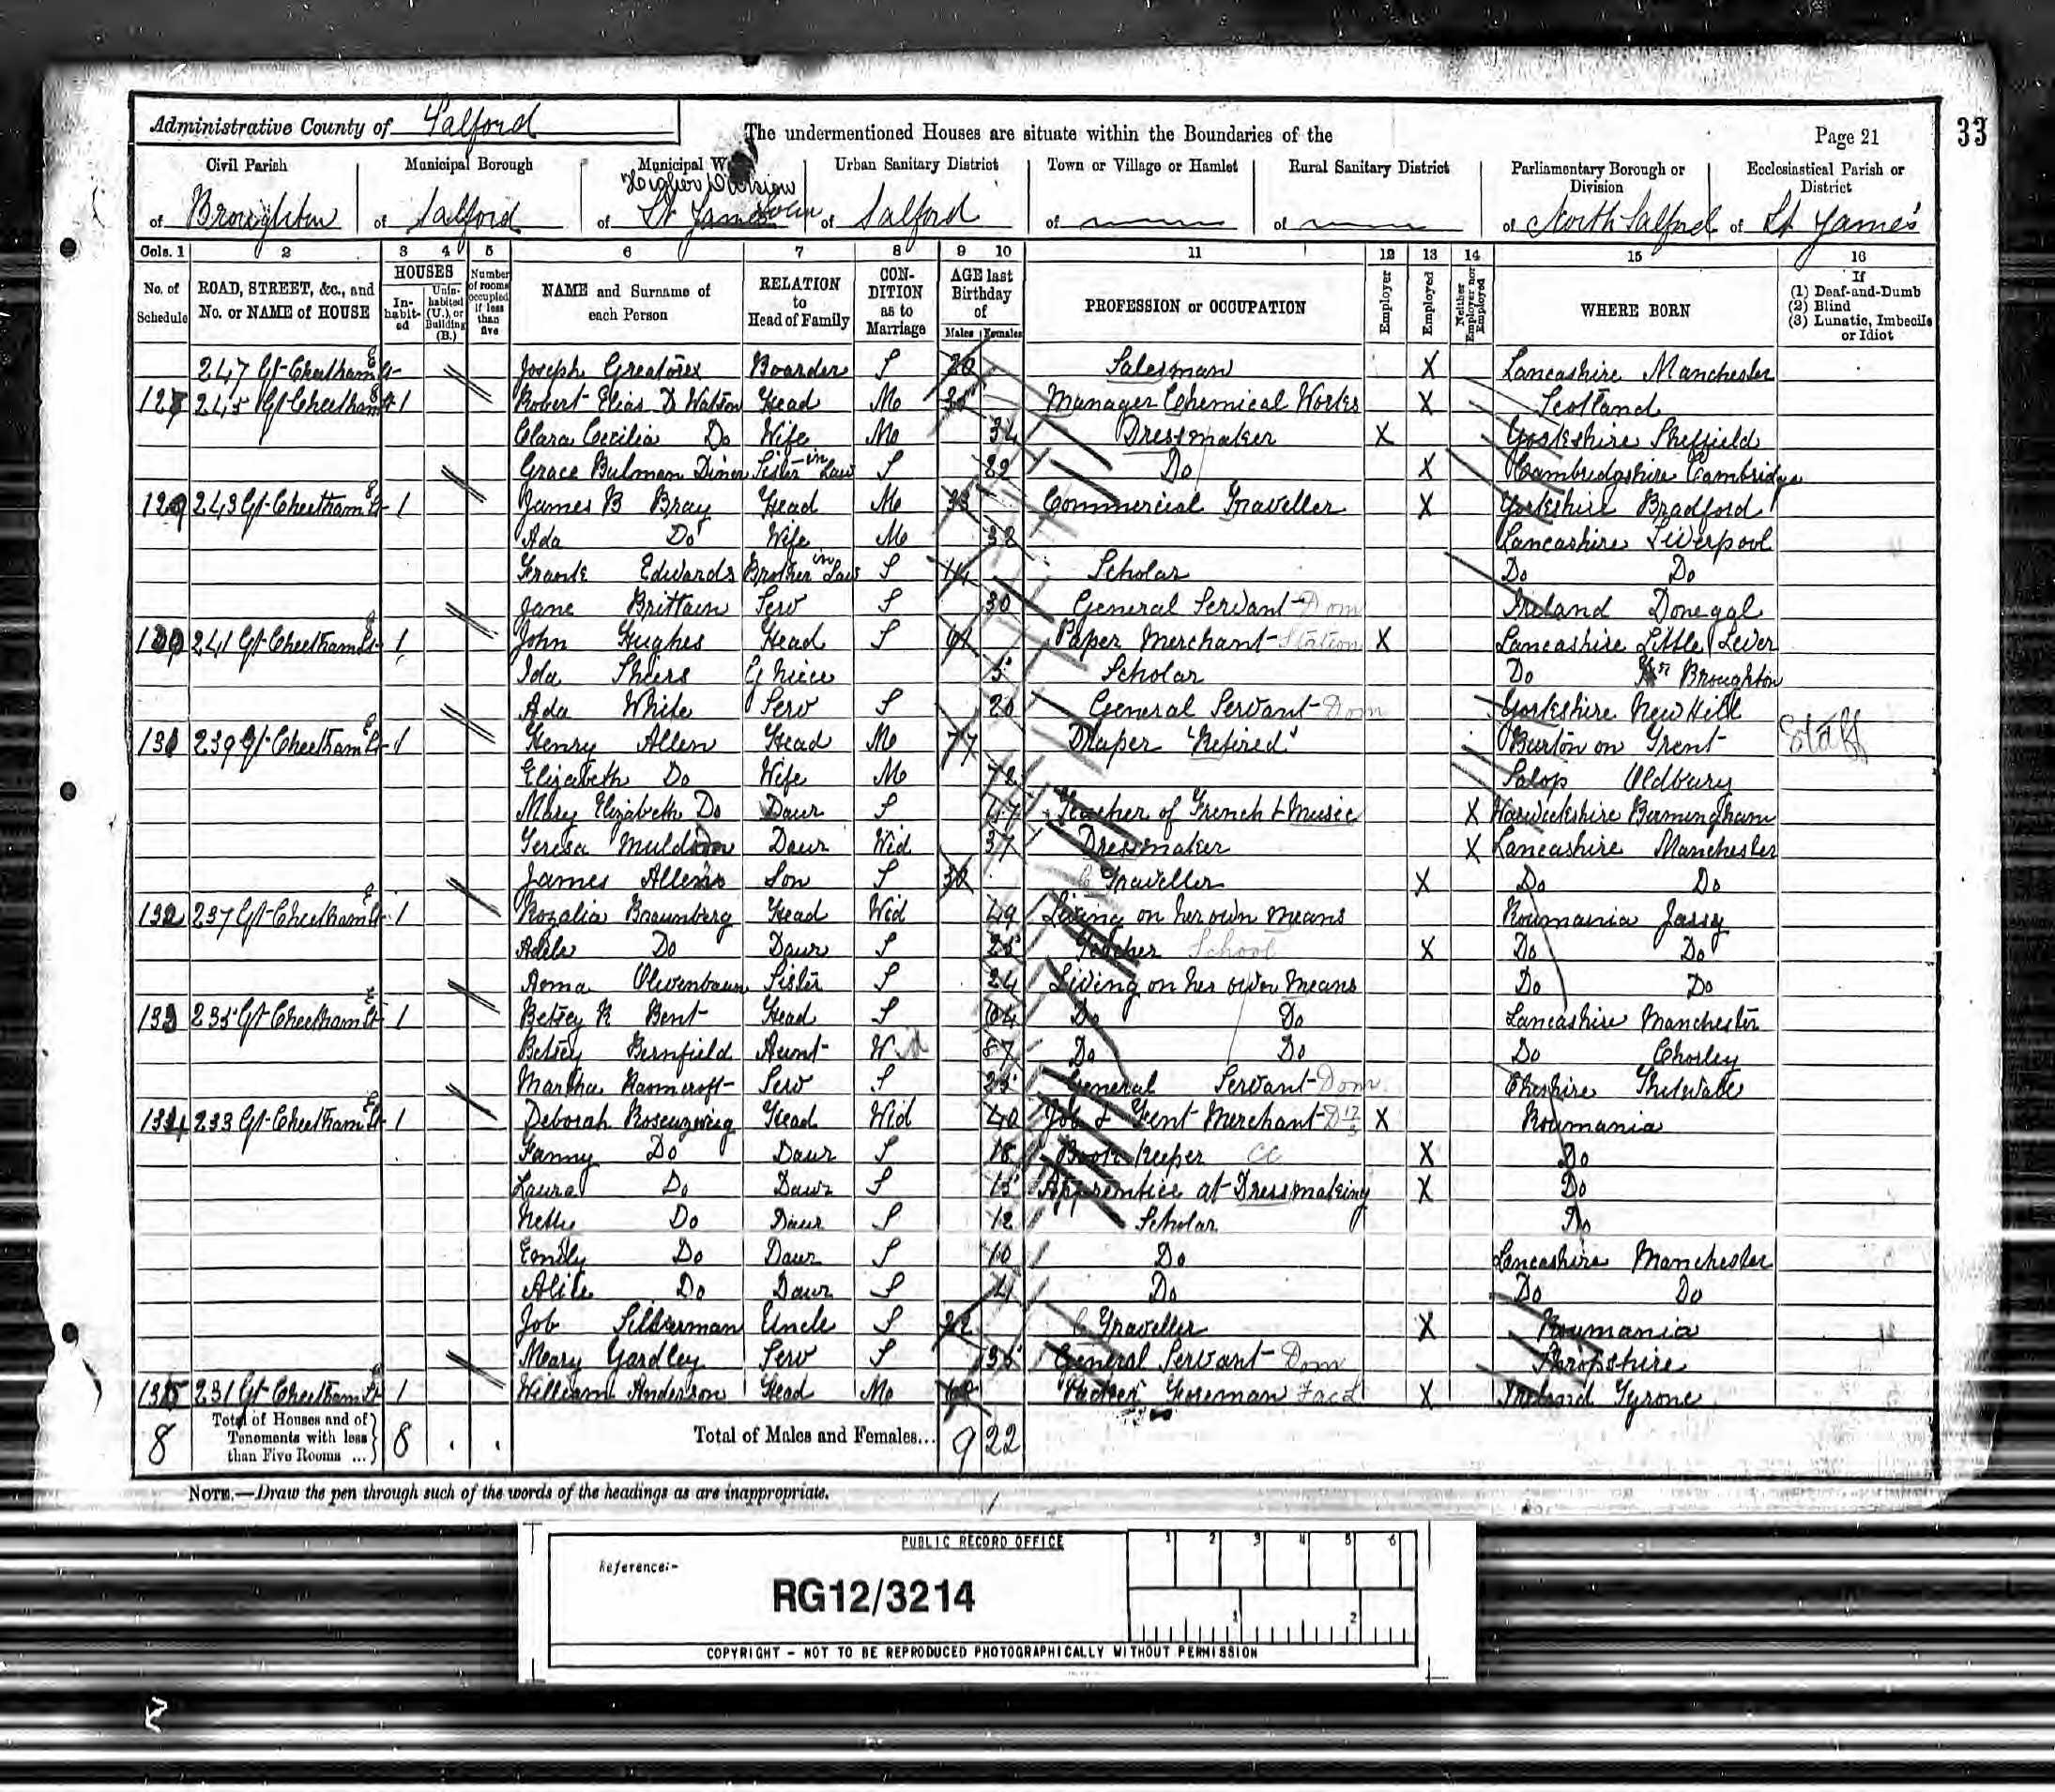 Administrative County of Salford
The undermentioned Houses are situate within the Boundaries of the
Page 21
33
Civil Parish of Broughton
Municipal Borough of Salford
Municipal Ward of St James
Urban Sanitary District of Salford
Town or Village or Hamlet of
Rural Sanitary District of
Parliamentary Borough or Division of North Salford
Ecclesiastical Parish or District of St James
Cols. 1 2 3 4 5 6 7 8 9 10 11 12 13 14 15 16
No. of Schedule
ROAD, STREET, &c., and No. or NAME of HOUSE
HOUSES
In-habit-ed
Unin-habited (U.), or Building (B.)
Number of rooms occupied if less than five
NAME and Surname of each Person
RELATION to Head of Family
CON-DITION as to Marriage
AGE last Birthday of
Males Females
PROFESSION or OCCUPATION
Employer
Employed
Neither Employer nor Employed
WHERE BORN
If (1) Deaf-and-Dumb (2) Blind (3) Lunatic, Imbecile or Idiot
247 Gt Cheetham St E Joseph Greatorex Boarder S 20 Salesman X Lancashire Manchester
245 Gt Cheetham St E 1 Robert Elias D Watson Head M Manager Chemical Works X Scotland
Clara Cecilia Do Wife M 34 Dressmaker X Yorkshire Sheffield
Grace Bulman Sister in Law S 22 Do X Cambridgeshire Cambridge
129 243 Gt Cheetham St E 1 James B Bray Head M 33 Commercial Traveller X Yorkshire Bradford
Ada Do Wife M 32 Lancashire Liverpool
Frank Edwards Brother in Law S 14 Scholar Do Do
Jane Brittain Serv S 30 General Servant Dom Ireland Donegal
130 241 Gt Cheetham St E 1 John Hughes Head S Paper Merchant Station X Lancashire Little Lever
Ida Shiers G Niece 5 Scholar Do Hr Broughton
Ada White Serv S 20 General Servant Dom Yorkshire New Hill
131 239 Gt Cheetham St E 1 Henry Allen Head M 77 Draper "Retired" Burton on Trent Staff
Elizabeth Do Wife M 72 Salop Oldbury
Mary Elizabeth Do Daur S 47 Teacher of French & Music X Warwickshire Birmingham
Teresa Muldoon Daur Wid 37 Dressmaker X Lancashire Manchester
James Allen Son S 32 C Traveller X Do Do
132 237 Gt Cheetham St E 1 Rozalia Braunberg Head Wid 49 Living on her own means Roumania Jassy
Adele Do Daur S 25 Teacher School X Do Do
Sister S 24 Living on her own means Do Do
133 235 Gt Cheetham St E 1 Betsey R Bent Head S 64 Do Do Lancashire Manchester
Betsey Bernfield Aunt Wid 87 Do Do Do Chorley
Martha Serv S 25 General Servant Dom Cheshire
134 233 Gt Cheetham St E 1 Deborah Rosenzweig Head Wid 40 Job & Fent Merchant X Roumania
Fanny Do Daur S 18 Book Keeper CC X Do
Laura Do Daur S 15 Apprentice at Dressmaking X Do
Netty Do Daur S 12 Scholar Do
Emily Do Daur S 10 Do Lancashire Manchester
Alice Do Daur S 4 Do Do Do
Job Silberman Uncle S 22 C Traveller X Roumania
Mary Yardley Serv S 35 General Servant Dom Shropshire
135 231 Gt Cheetham St E 1 William Anderson Head M Foreman X Ireland Tyrone
8 Total of Houses and of Tenements with less than Five Rooms ... 8 Total of Males and Females... 9 22
NOTE.—Draw the pen through such of the words of the headings as are inappropriate.
PUBLIC RECORD OFFICE
1 2 3 4 5 6
Reference:-
RG12/3214
1 2
COPYRIGHT - NOT TO BE REPRODUCED PHOTOGRAPHICALLY WITHOUT PERMISSION